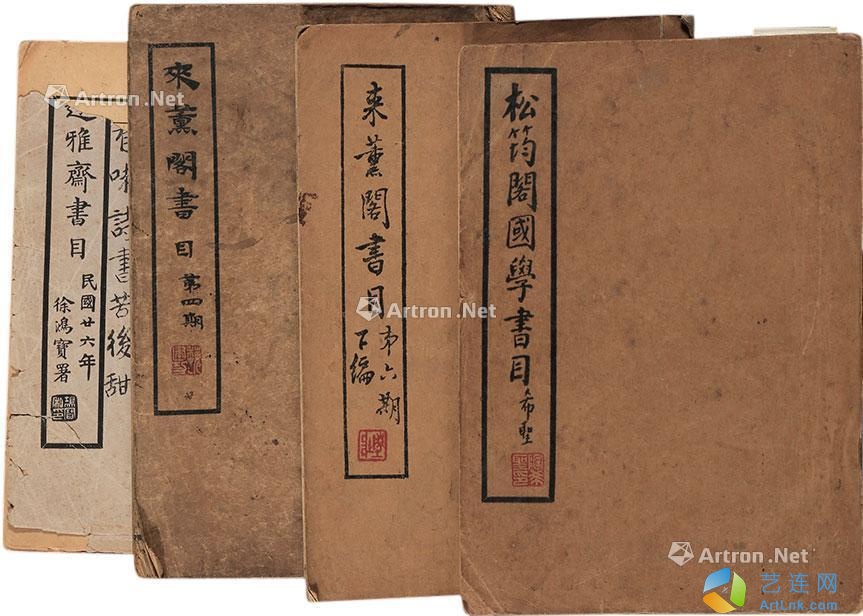 松筠閣國學書目
希聖
来薰閣書目
第六期
下编
來薰閣書目
第四期
雅齋書目
民國廿六年
徐鴻寶署
詩書苦後甜
Artron.Net
Artron.Net
Artron.Net
Artron.Net
艺连网
ArtLnk.com